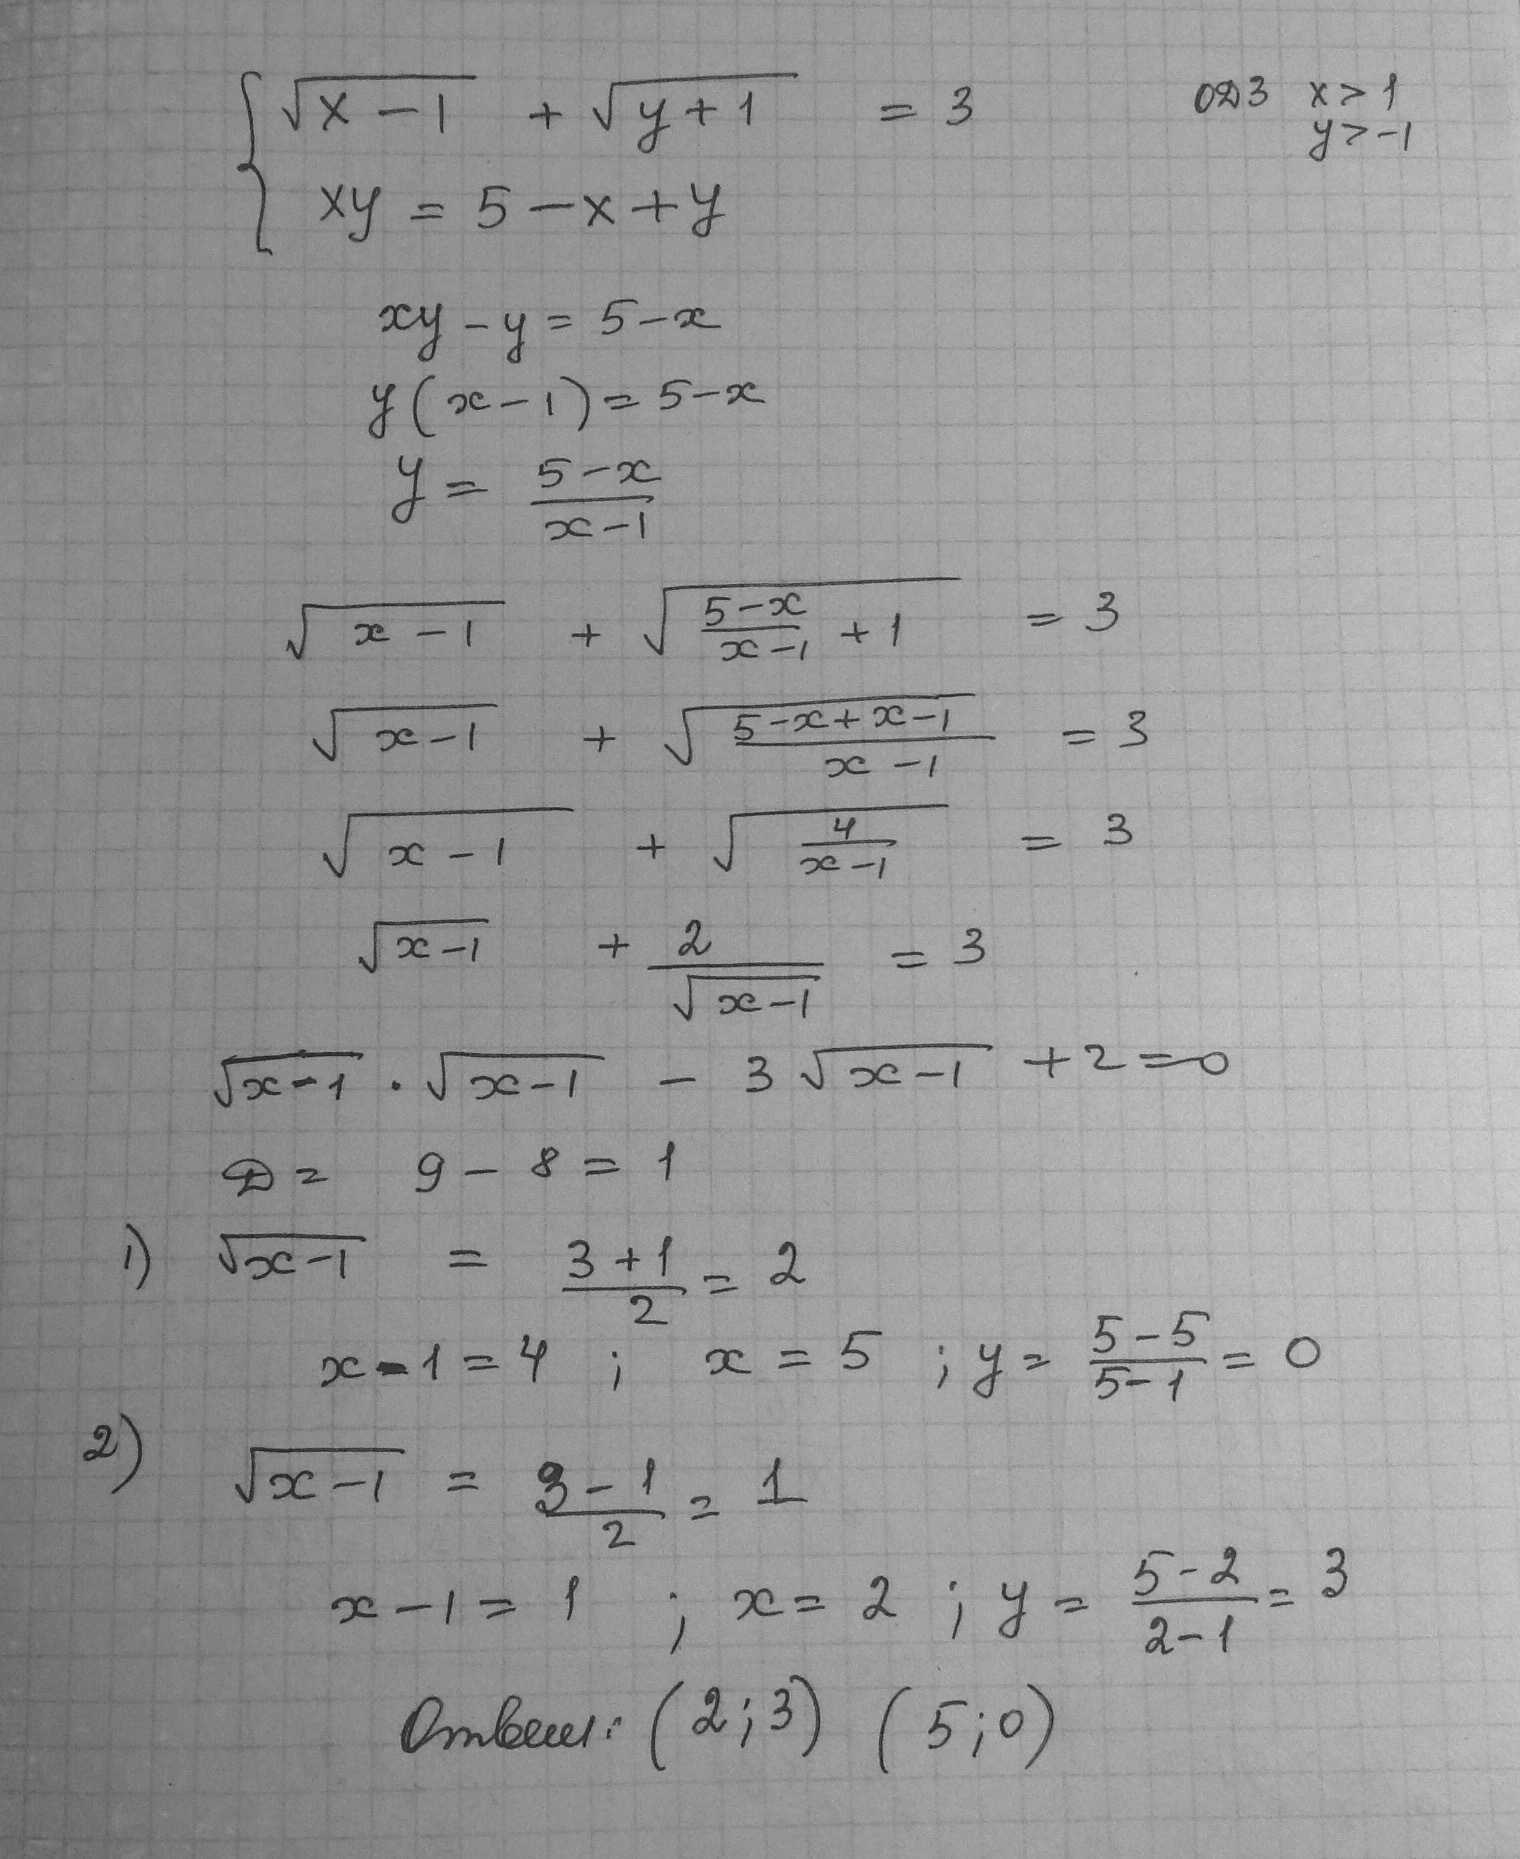 √(x-1) + √(y+1) = 3 ОДЗ x>1
y>-1
xy = 5-x+y
xy-y=5-x
y(x-1)=5-x
y = (5-x)/(x-1)
√(x-1) + √((5-x)/(x-1) + 1) = 3
√(x-1) + √((5-x+x-1)/(x-1)) = 3
√(x-1) + √(4/(x-1)) = 3
√(x-1) + 2/√(x-1) = 3
√(x-1) · √(x-1) - 3√(x-1) + 2=0
D = 9-8=1
1) √(x-1) = (3+1)/2 = 2
x-1=4 ; x=5 ; y = (5-5)/(5-1) = 0
2) √(x-1) = (3-1)/2 = 1
x-1=1 ; x=2 ; y = (5-2)/(2-1) = 3
Ответ: (2;3) (5;0)